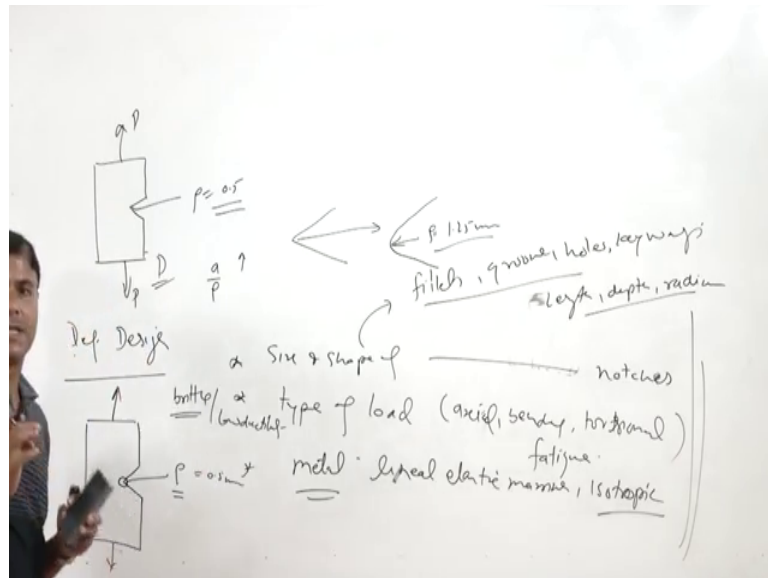 P
ρ = 0.5
D
a/ρ ↑
P
ρ: 1.25 mm
fillets, groove, holes, keyways
length, depth, radius
Def. Design
* Size & shape of — notches
brittle/ * type of load (axial, bending, torsional)
fatigue.
ρ = 0.5 mm *
metal. elastic, isotropic